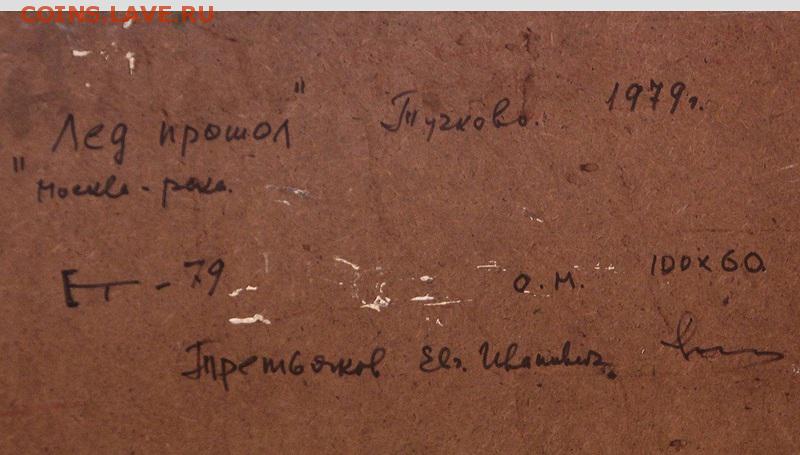 COINS.LAVE.RU
Лед прошол" Тучково. 1979г.
"Москва-река.
ЕТ-79 о.м. 100х60
Третьяков Евг. Иванович.